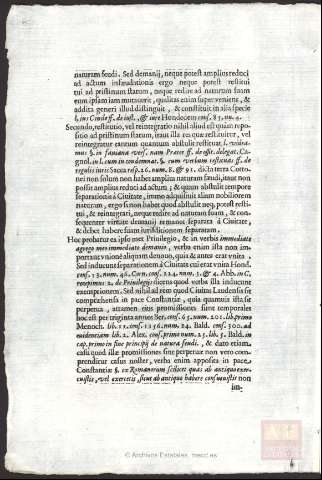 naturam feudi. Sed demanij, neque potest amplius reduci
ad actum infeudationis ergo neque potest restitui
tui ad pristinum statum, neque redire ad naturam suam
cum ipsam iam mutauerit, qualitas enim superueniens, &
addita generi illud distinguit, & constituit in alia specie
l. ius Ciuile ff. de iust. & iure Hondedeum cons. 83. nu. 4.
Secundo, restitutio, vel reintegratio nihil aliud est quàm repo-
sitio ad pristinum statum, itaut illa res quæ restituitur, vel
reintegratur eamdem quantum abstulit restituat,
mus §. in fauiana verf. nam Prætor ff. de offic. delegat. Ca-
gnol. in l. cum in condemnat. §. cum verbum restituas ff. de
regulis iuris Sacca resp. 26. num. 8. & 91. dicta terra Corto-
nei non solum non habet amplius naturam feudi, itaut non
possit amplius reduci ad actum; & quum abstulit tempore
separationis à Ciuitate, immo adquisiuit aliam nobiliorem
naturam, ergo si non habet quod abstulit neq. potest resti-
tui, & reintegrari, neque redire ad naturam suam, & con-
sequenter virtute demanij remanet separata à Ciuitate,
& debet habere suam iurisdictionem separatam.
Hoc probatur ex ipso met Priuilegio, & in verbis immediatè
agrego meo immediatè demanio, verba enim ista non im-
portant vnionè aliquam denuo, quia & antea erat vnita.
Sed inducunt separationem à Ciuitate cui erat vnita Hond.
cons. 13. num. 46. Corn. cons. 124. num. 3. & 4. Abb. in C.
recepimus 2. de Priuilegijs dicens quod verba illa inducunt
exemptionem. Sed nihil ad rem quod Ciuitas Laudensis sit
comprehensa in pace Constantiæ, quia quamuis ista sit
perpetua, attamen eius promissiones sunt temporales
hoc est per triginta annus Ser. cons. 63. num. 201. lib. primo
Menoch. lib. 13. cons. 1236. num. 24. Bald. cons. 300. ad
euidentiam lib. 2. Alex. cons. primo num. 25. lib. 5. Bald. in
cap. primo in fine principij de natura feudi, & dato etiam
casu quod illæ promissiones sint perpetuæ non vero com-
prenditur casus noster, verba enim apposita in pace
Constantiæ §. ex Romanorum scilicet quas ab antiquo exer-
cuistis, vel exercetis, sicut ab antiquo habere consueuistis non
© Archivos Estatales, mecd.es